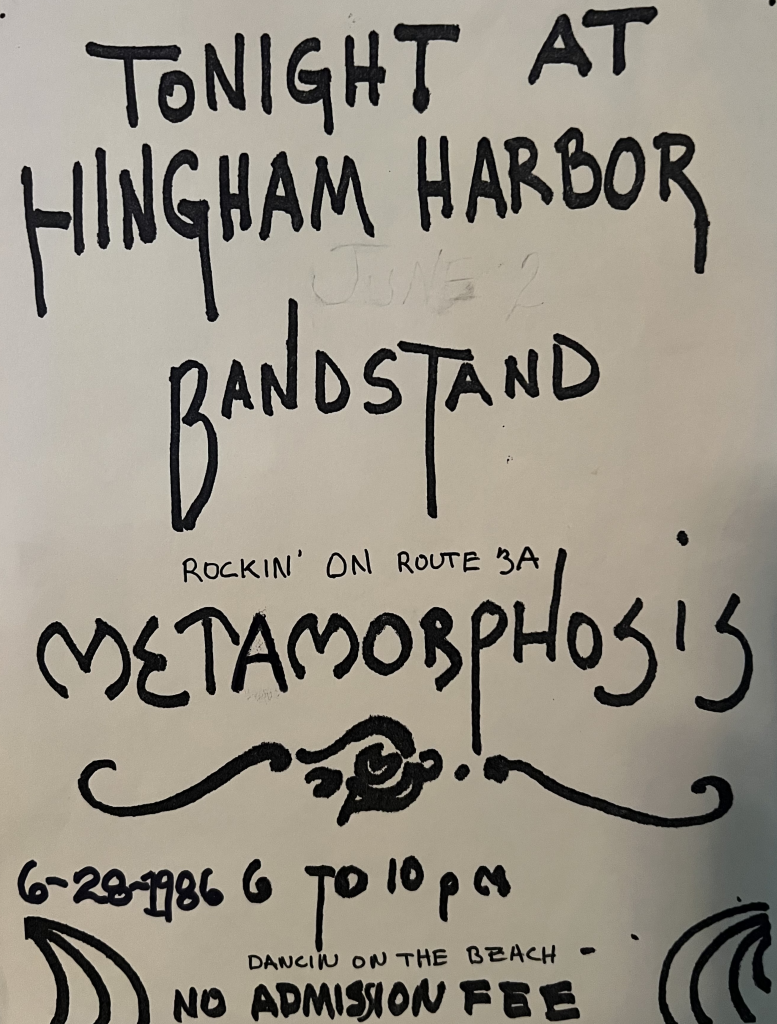 TONIGHT AT
HINGHAM HARBOR
JUNE 2
BANDSTAND
ROCKIN' ON ROUTE 3A
METAMORPHOSIS
6-28-1986 6 TO 10 PM
DANCIN ON THE BEACH -
NO ADMISSION FEE